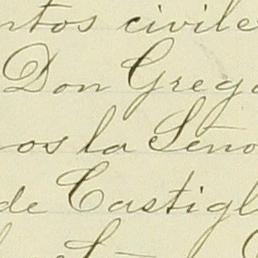 ntos civile
Don Grego
os la Seño
de Castigl